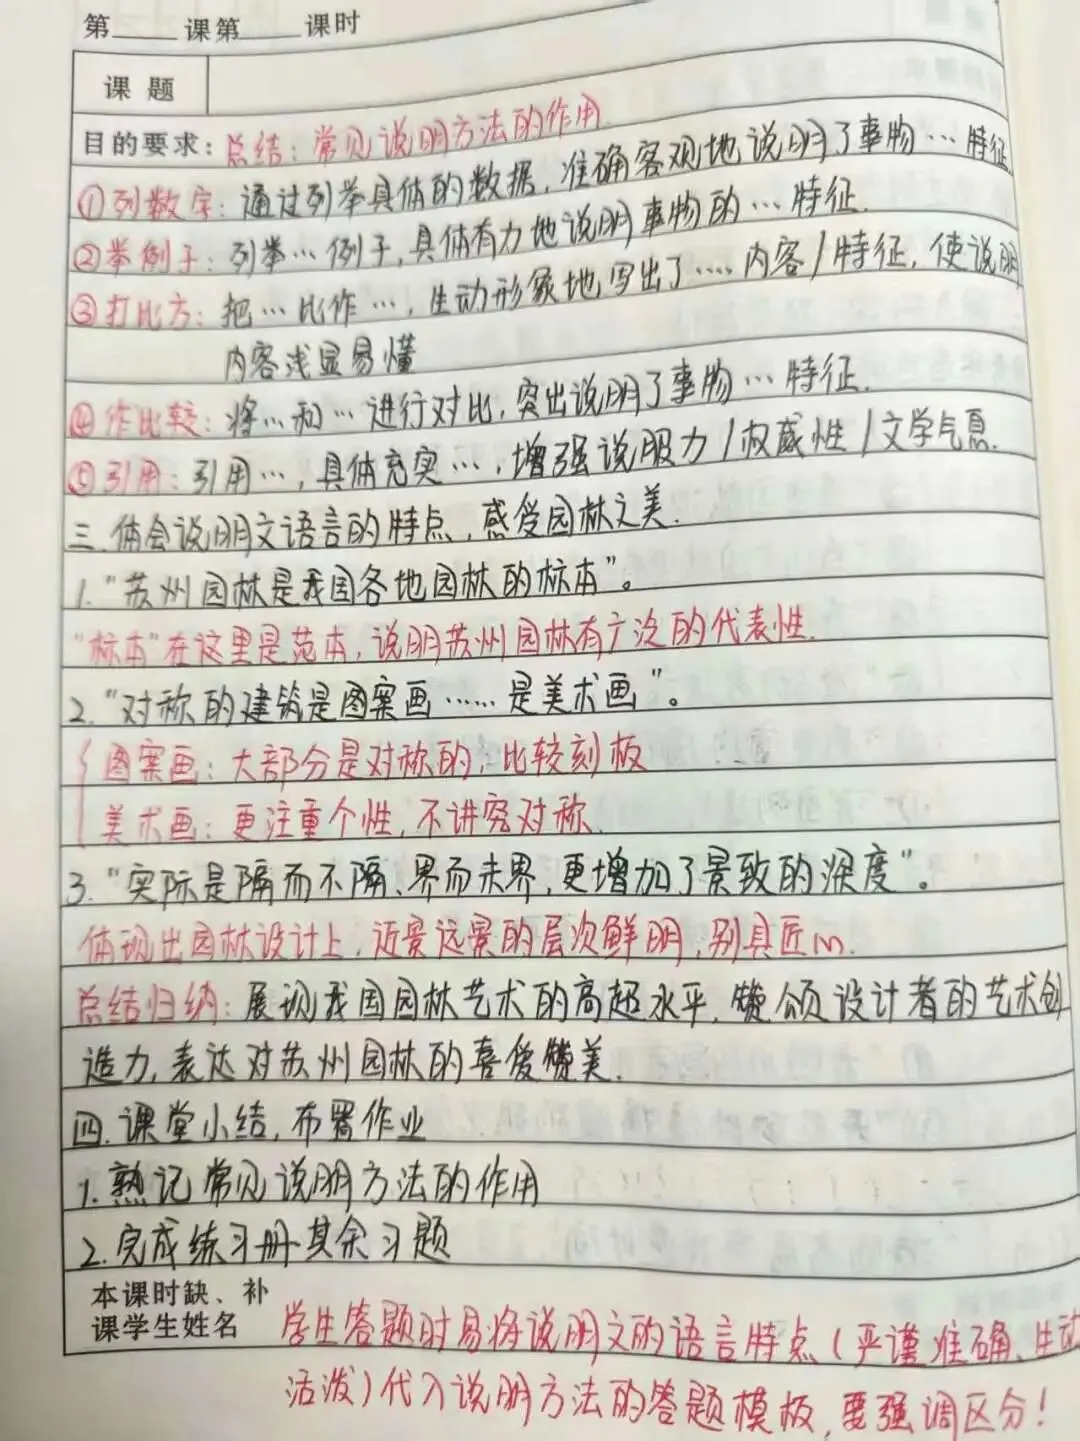 第____课第____课时
课题
目的要求：总结：常见说明方法的作用
①列数字：通过列举具体的数据，准确客观地说明了事物…特征
②举例子：列举…例子，具体有力地说明事物的…特征.
③打比方：把…比作…，生动形象地写出了….内容/特征，使说明
内容浅显易懂
④作比较：将…和…进行对比，突出说明了事物…特征.
⑤引用：引用…，具体充实…，增强说服力/权威性/文学气息.
三.体会说明文语言的特点，感受园林之美.
1."苏州园林是我国各地园林的标本"。
"标本"在这里是范本，说明苏州园林有广泛的代表性.
2."对称的建筑是图案画……是美术画"。
图案画：大部分是对称的，比较刻板
美术画：更注重个性，不讲究对称.
3."实际是隔而不隔、界而未界，更增加了景致的深度"。
体现出园林设计上，近景远景的层次鲜明，别具匠心.
总结归纳：展现我国园林艺术的高超水平，赞颂设计者的艺术创
造力，表达对苏州园林的喜爱赞美.
四.课堂小结，布置作业
1.熟记常见说明方法的作用
2.完成练习册其余习题
本课时缺、补
课学生姓名
学生答题时易将说明文的语言特点（严谨准确、生动
活泼）代入说明方法的答题模板，要强调区分！